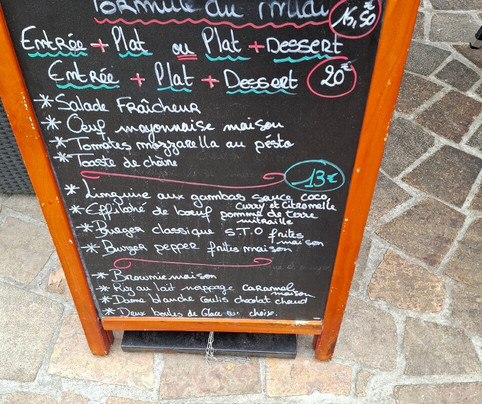 Formule du midi 15,50€
Entrée + Plat ou Plat + Dessert
Entrée + Plat + Dessert 20€
* Salade Fraîcheur
* Oeuf mayonnaise maison
* Tomates mozzarella au pésto
* Toaste de chèvre
13€
* Linguine aux gambas sauce coco
curry et citronnelle
* Effiloché de boeuf pomme de terre
mitraille
* Burger classique S.T.O frites
maison
* Burger pepper frites maison
* Brownie maison
* Riz au lait nappage caramel
maison
* Dame blanche coulis chocolat chaud
* Deux boules de Glace au choix.